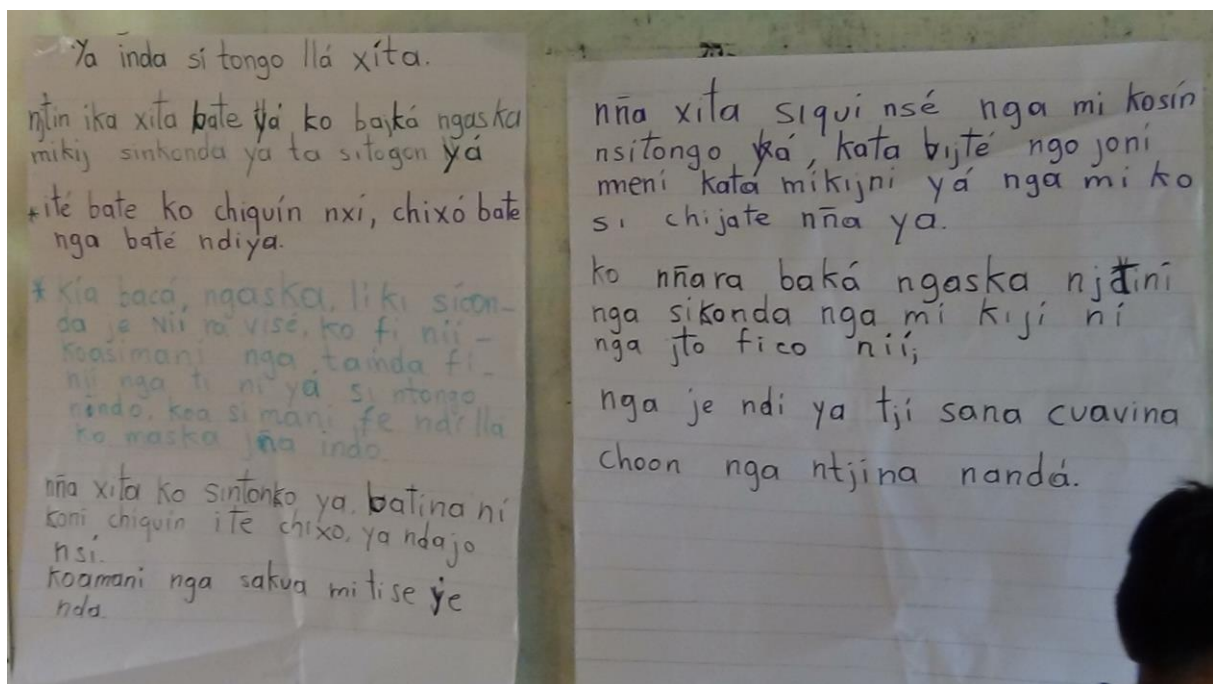 Ya inda si tongo llá xíta.
ntin ika xita bate yá ko bajká ngaska
mikij sinkonda ya ta sitogon yá
*ité bate ko chiquín nxí, chixó bate
nga baté ndiya.
* Kia bacá, ngaska, liki sicon-
da je Nií ra visé, ko fi nií-
koasimani nga tainda fi-
nii nga ti ni ya si ntongo
nindo. koa si mani fe ndi llá
ko maska jña indo.
nña xita ko sintonko ya. batina ni
koni chiquin ite chixo, ya ndajo
nsí.
koamani nga sakua mitise je
nda.
nña xita siquí nsé nga mi kosín
nsitongo yá, kata bijté ngo joni
meni kata míkijni yá nga mi ko
si chijate nña ya.
ko nñara baká ngaska njtiní
nga sikonda nga mi kiji ní
nga jto fico nií,
nga je ndi ya tji sana cuavina
choon nga ntjina nandá.